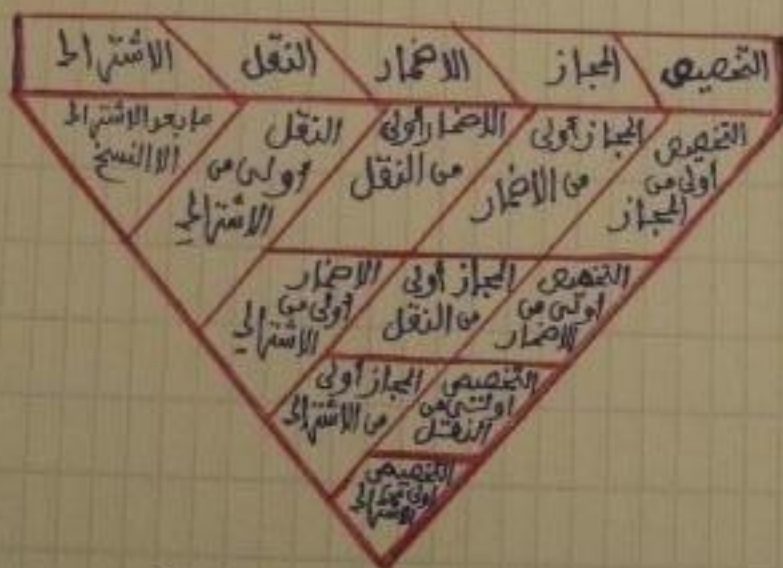 التخصيص المجاز الاضمار النقل الاشتراك
التخصيص
أولى من
المجاز
المجاز أولى
من الاضمار
الاضمار أولى
من النقل
النقل
أولى من
الاشتراك
ما بعد الاشتراك
الا النسخ
التخصيص
أولى من
الاضمار
المجاز أولى
من النقل
الاضمار
أولى من
الاشتراك
التخصيص
اولى من
النقل
المجاز أولى
من الاشتراك
التخصيص
أولى من
الاشتراك